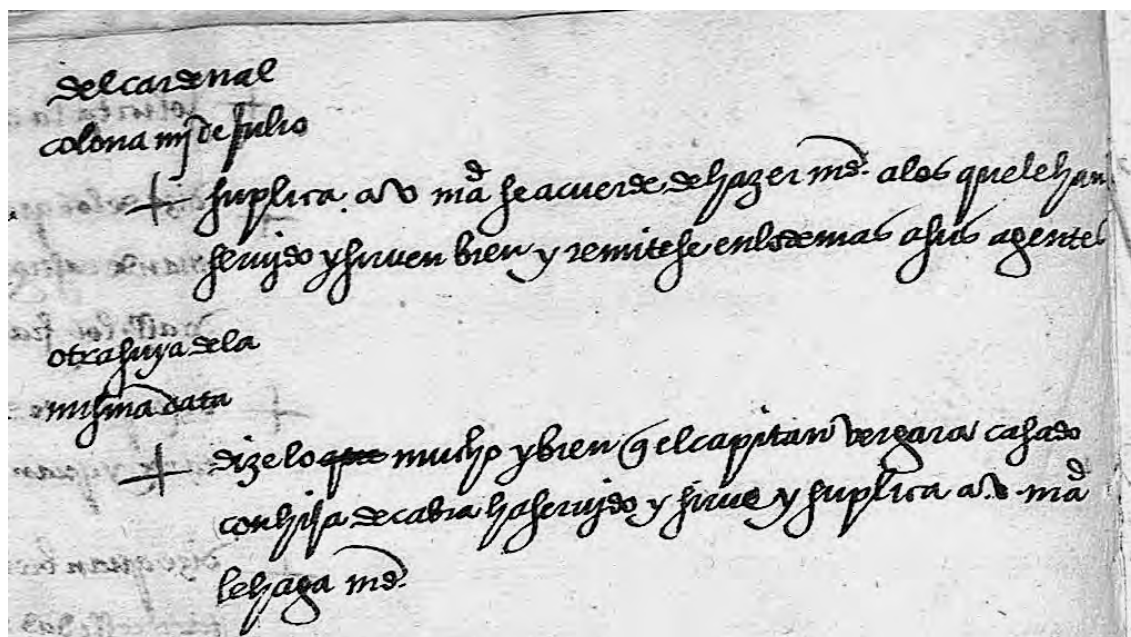 del cardenal
colona iiij de Julio
+ suplica. a v mad se acuerde de hazer md. a los que le han
seruido y siruen bien y remitese en lo demas a sus agentes
otra suya de la
misma data
+ dize lo que mucho y bien q el capitan vergara casado
con hija de cabra ha seruido y sirue y suplica a. v. mad
le haga md.